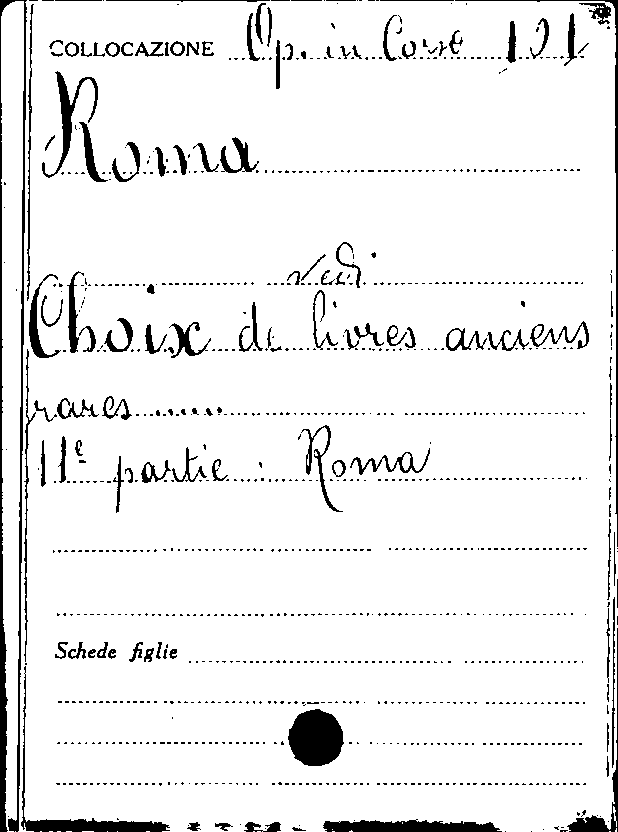 COLLOCAZIONE Op. in Corse 121
Roma
vedi
Choix de livres anciens
rares .......
11e partie : Roma
Schede figlie